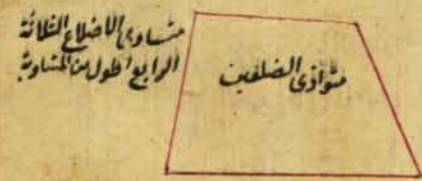 متساوى الاضلاع الثلاثة
الرابع اطول من المتساوية
متوازى الضلعين